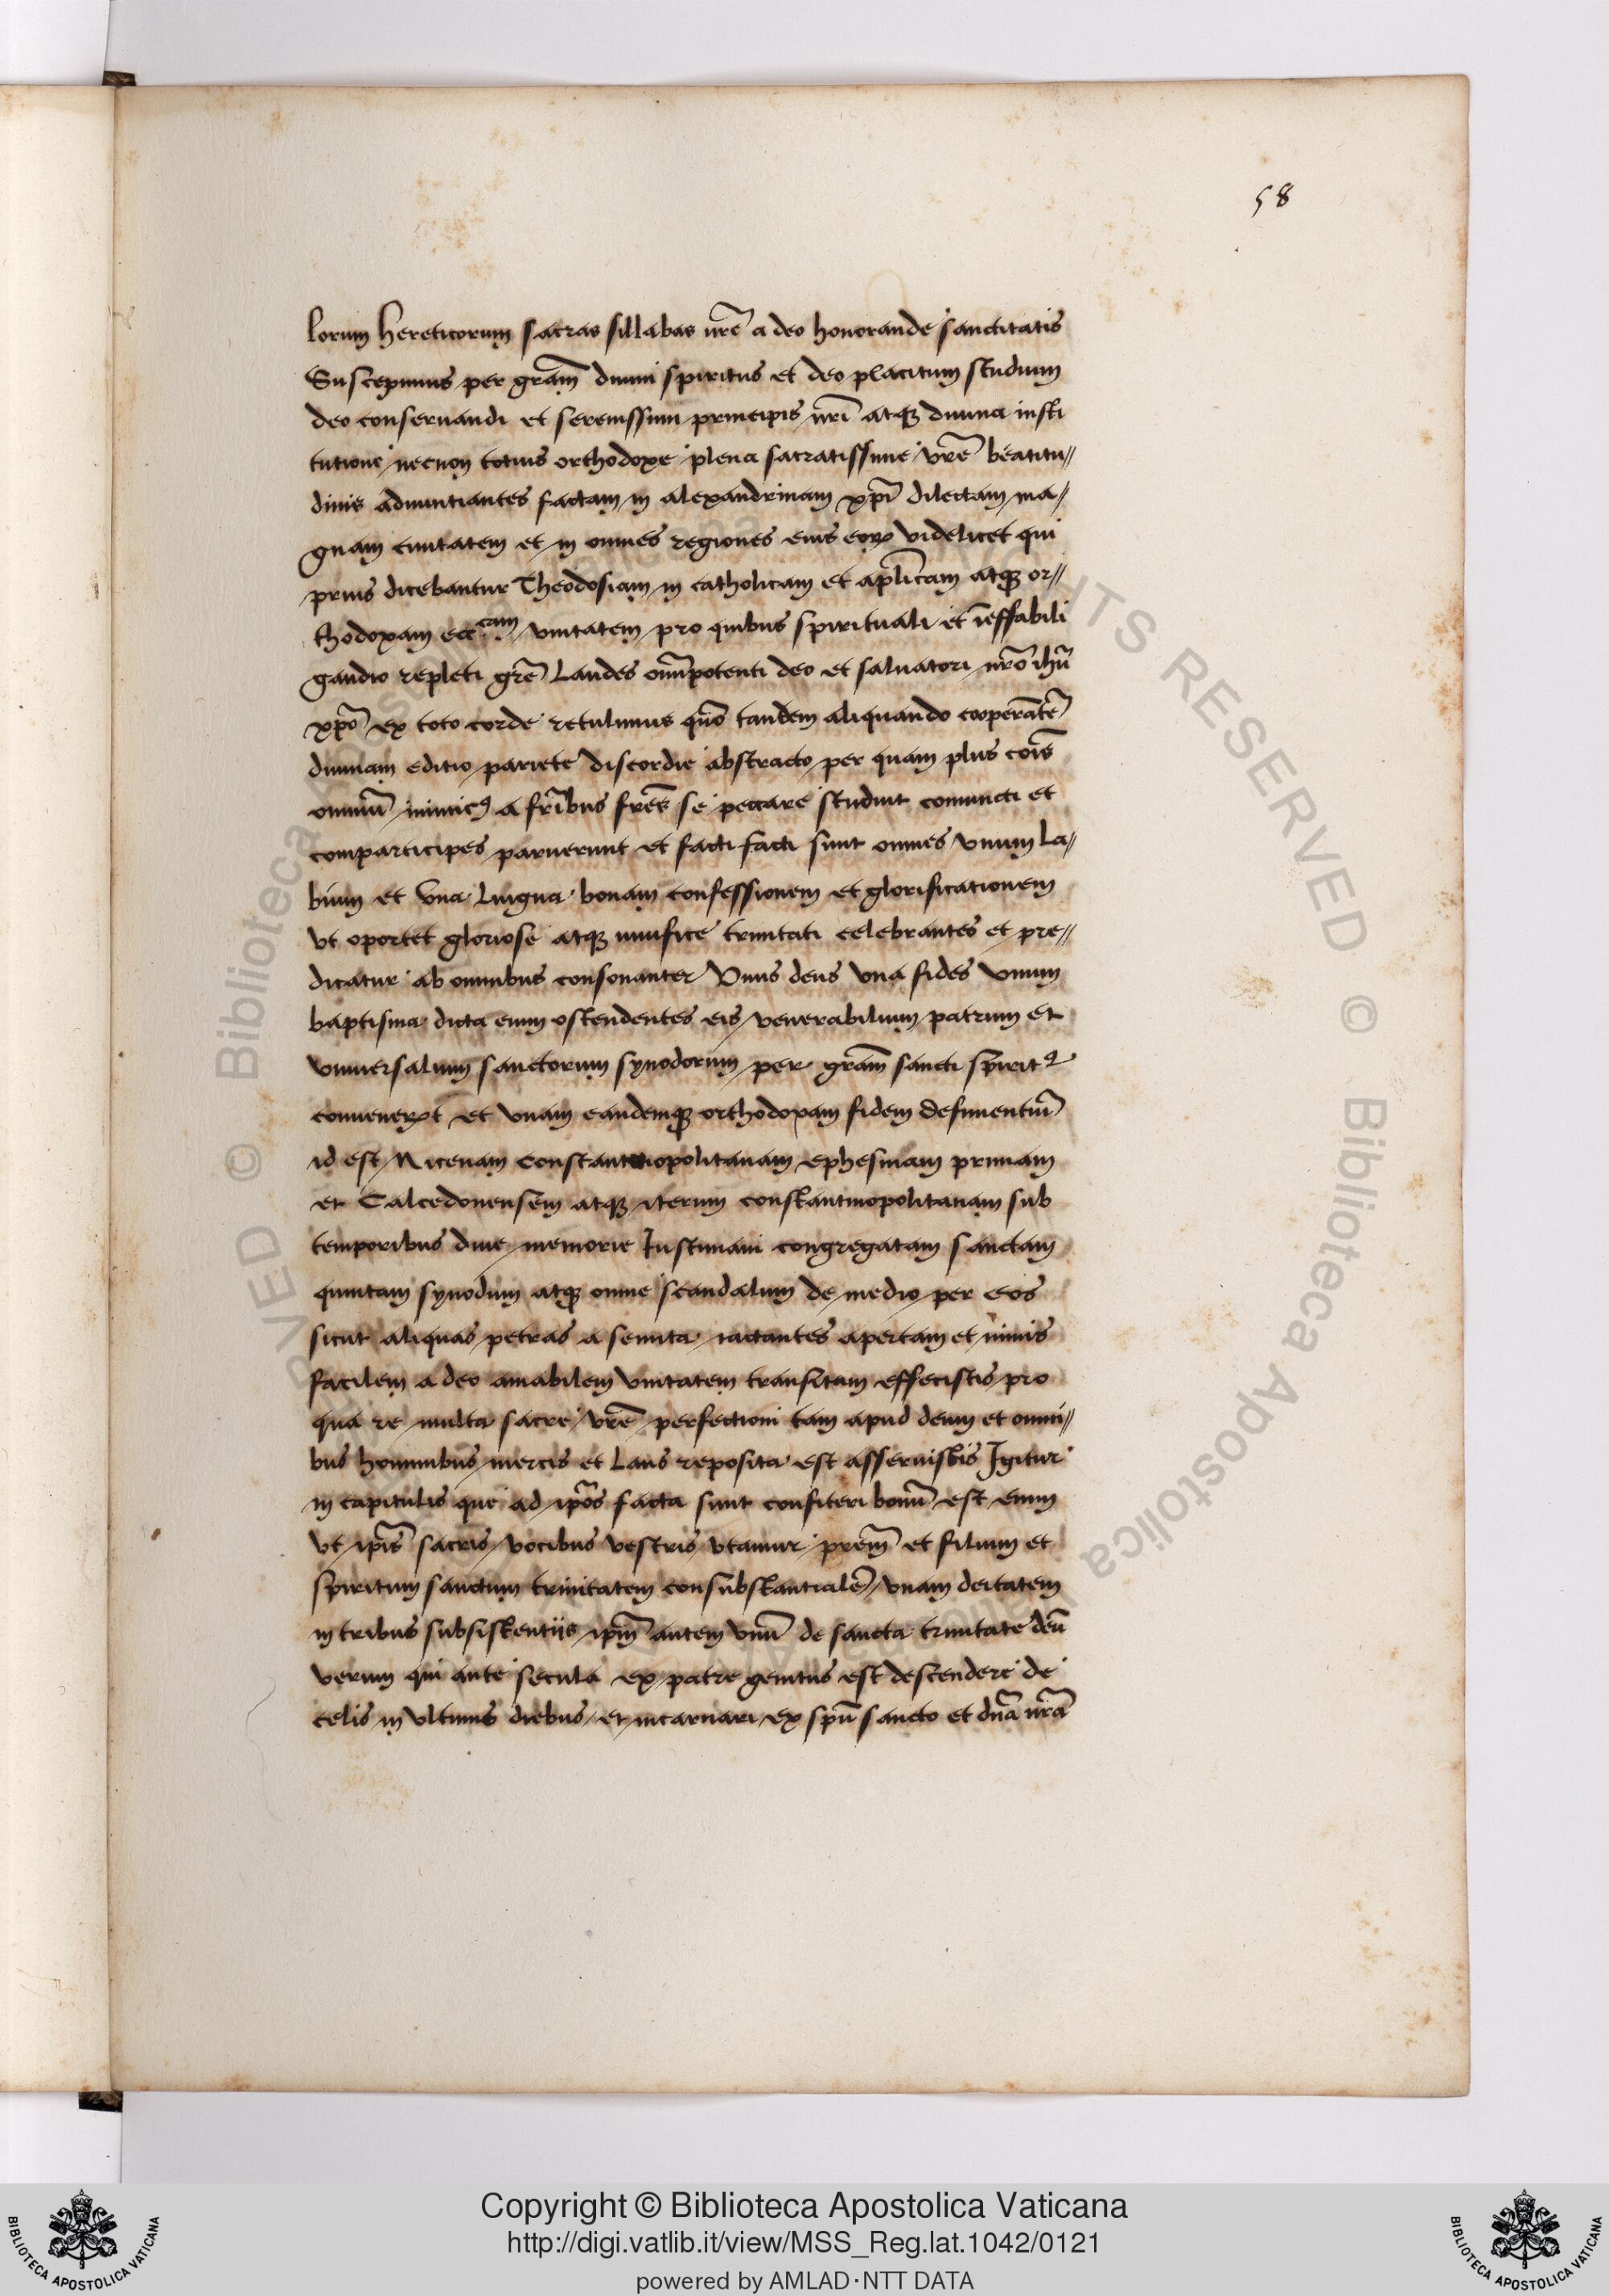 58
lorum hereticorum sacras sillabas vrē a deo honorande sanctitatis
Suscepimus per grām diuini spiritus et deo placitum studium
deo conseruandi et serenissimi principis nrī atqꝫ diuina insti
tutione necnon totius orthodoxe plena sacratissime vrē beatitu//
dinis adnuntiantes factam in alexandrinam xpī dilectam ma/
gnam ciuitatem et in omnes regiones eius eoꝝ videlicet qui
prius dicebantur Theodosiani in catholicam et aplicam atqꝫ or//
thodoxam eccᶜᵃᵐ vnitatem pro quibus spirituali et īeffabili
gaudio repleti grē Laudes omīpotenti deo et saluatori nrō ihū
xpō ex toto corde retulimus quō tandem aliquando cooperātē
diuinam editio pariete discordie abstracto per quam plus cois
omniū inimicꝰ a fribus frēs se peccare studuit coniuncti et
comparticipes paruerunt et facti facti sunt omnes vnum La/
bium et vna Lingua bonam confessionem et glorificationem
vt oportet gloriose atqꝫ munifice trinitati celebrantes et pre//
dicatur ab omnibus consonanter Vnus deus vna fides vnum
baptisma dicta enim ostendentes eis venerabilium patrum et
vniuersalium sanctorum synodorum per grām sancti spiritꝰ
conueneꝝt et vnam eandemqꝫ orthodoxam fidem definientiū
id est Nicenam constantinopolitanam ephesinam primam
et Calcedonensem atqꝫ iterum constantinopolitanam sub
temporibus diue memorie Iustiniani congregatam sanctam
quintam synodum atqꝫ omne scandalum de medio per eos
sicut aliquas petras a semita iactantes apertam et nimis
facilem a deo amabilem vnitatem transitam effecistis pro
qua re multa sacre vrē perfectioni tam apud deum et omni//
bus hominibus mercis et Laus reposita est asseruistis Igitur
in capitulis que ad ipōs facta sunt confiteri bonū est enim
vt ipīs sacris vocibus vestris vtamur prēm et filium et
spiritum sanctum trinitatem consubstantialē vnam deitatem
in tribus subsistentijs ipm̄ autem vnū de sancta trinitate deū
verum qui ante secula ex patre genitus est descendere de
celis in vltimis diebus et incarnari ex spū sancto et dnā nrā
Copyright © Biblioteca Apostolica Vaticana
http://digi.vatlib.it/view/MSS_Reg.lat.1042/0121
powered by AMLAD·NTT DATA
BIBLIOTECA APOSTOLICA VATICANA
BIBLIOTECA APOSTOLICA VATICANA